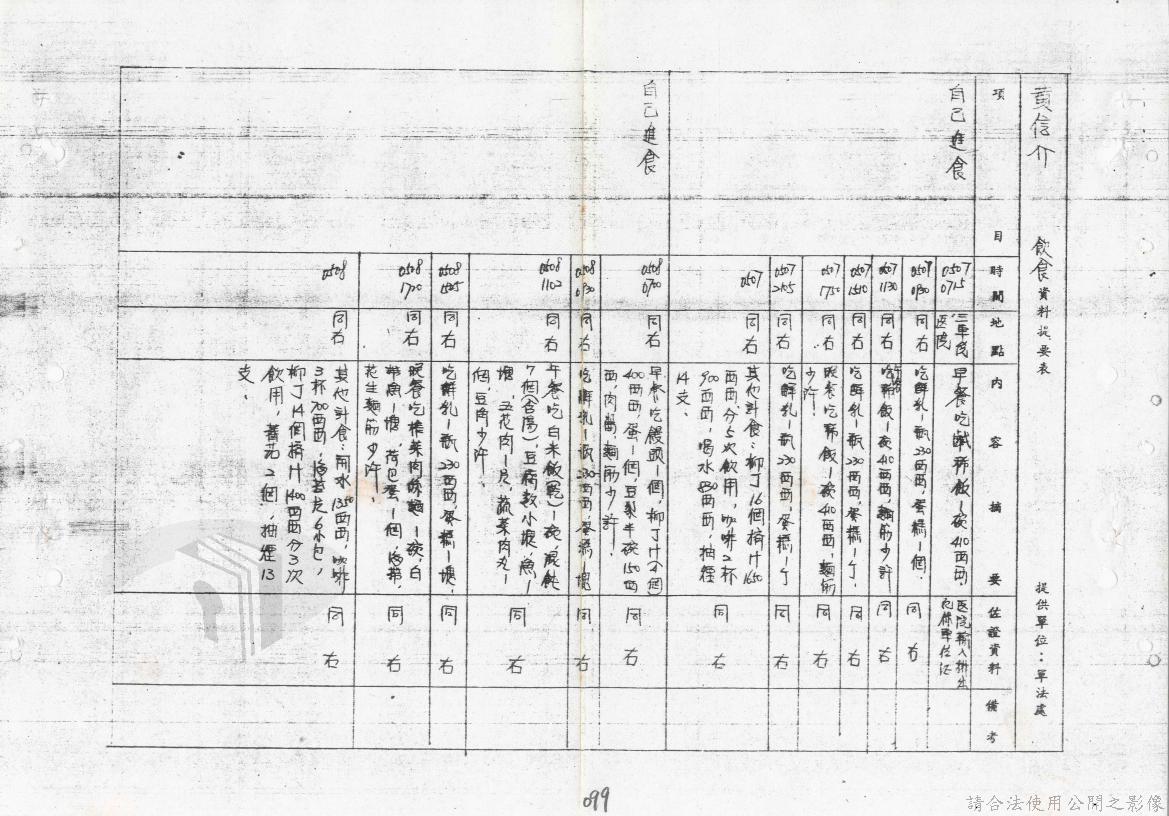 黃信介　飲食資料提要表　提供單位：軍法處
項　目　時間　地點　內容摘要　佐證資料　備考
自己進食
0507
0715
三軍民
医院
早餐吃稀飯一碗410西西
医院輸入排出
0507
0930
同右
吃鮮乳一瓶230西西，蛋糕一個.
同右
0507
1130
同右
午餐
吃稀飯一碗410西西，麵筋少許
同右
0507
1510
同右
吃鮮乳一瓶230西西，蛋糕一丁.
同右
0507
1750
同右
晚餐吃稀飯一碗410西西，麵筋
少許.
同右
0507
2105
同右
吃鮮乳一瓶230西西，蛋糕一丁
同右
0507
同右
其他計食：柳丁16個擠汁1650
西西，分5次飲用，咖啡2杯
900西西，喝水　西西，抽煙
14支、
同右
自己進食
0508
0700
同右
早餐吃饅頭一個，柳丁汁(4個)
400西西，蛋一個，豆漿半碗150西
西，肉鬆，麵筋少許.
同右
0508
0930
同右
吃鮮乳一瓶230西西，蛋糕一塊
同右
0508
1102
同右
午餐吃白米飯(乾)一碗，餛飩
7個(含湯)，豆腐　小塊，魚一
塊，五花肉一片，蔬菜肉丸一
個，豆角少許.
同右
0508
1505
同右
吃鮮乳一瓶230西西，蛋糕一塊，
同右
0508
1720
同右
晚餐吃榨菜肉絲麵一碗，白
帶魚一塊，荷包蛋一個，海帶，
花生麵筋少許、
同右
0508
同右
其他計食：開水1350西西，咖啡
3杯700西西，海苔片6小包，
柳丁14個擠汁1400西西分3次
飲用，蕃茄2個，抽煙13
支、
同右
099
請合法使用公開之影像